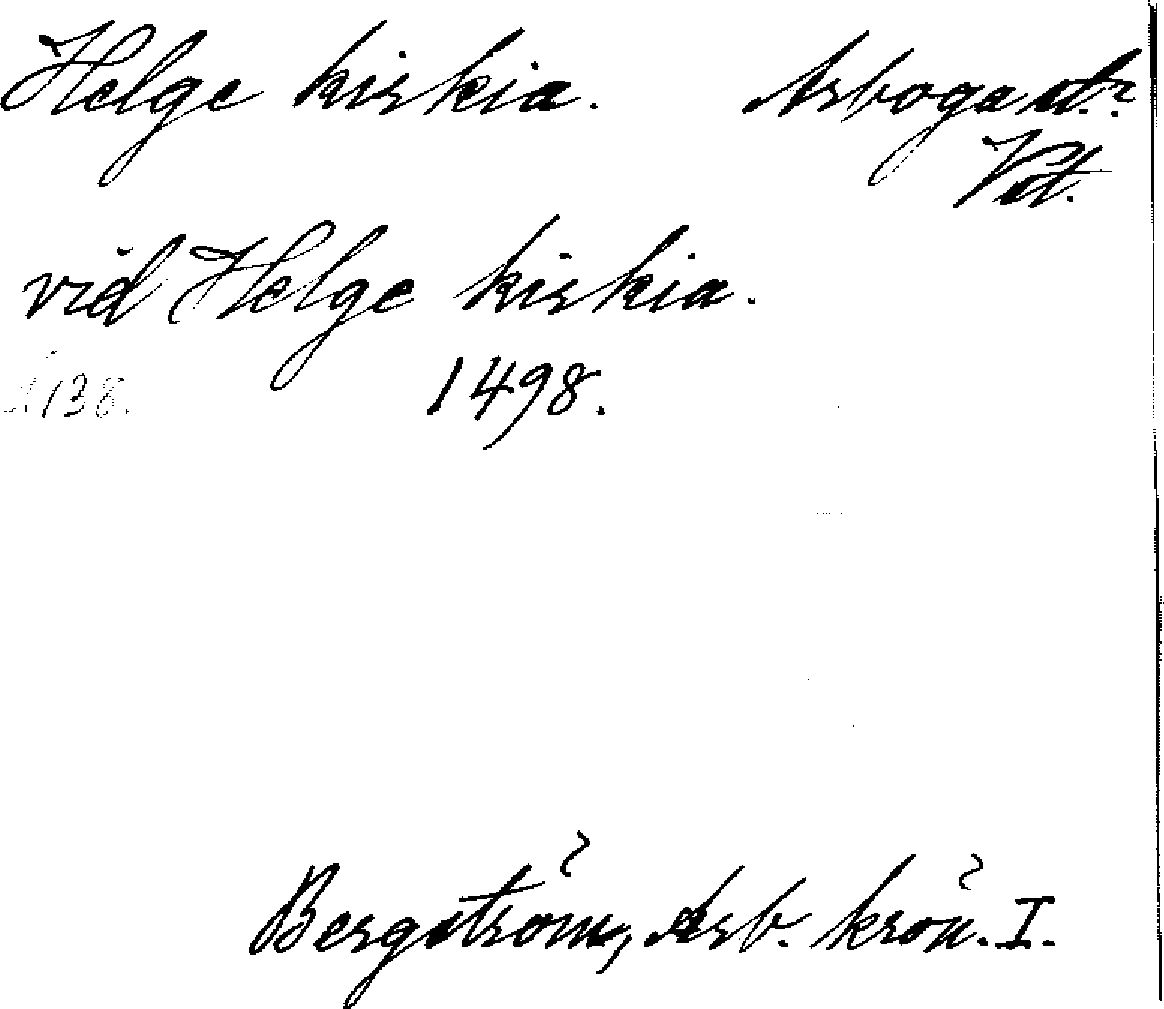 Helge kirkia. Arboga st.?
Vstm.
vid Helge kirkia.
138. 1498.
Bergström, Arb. krön. I.